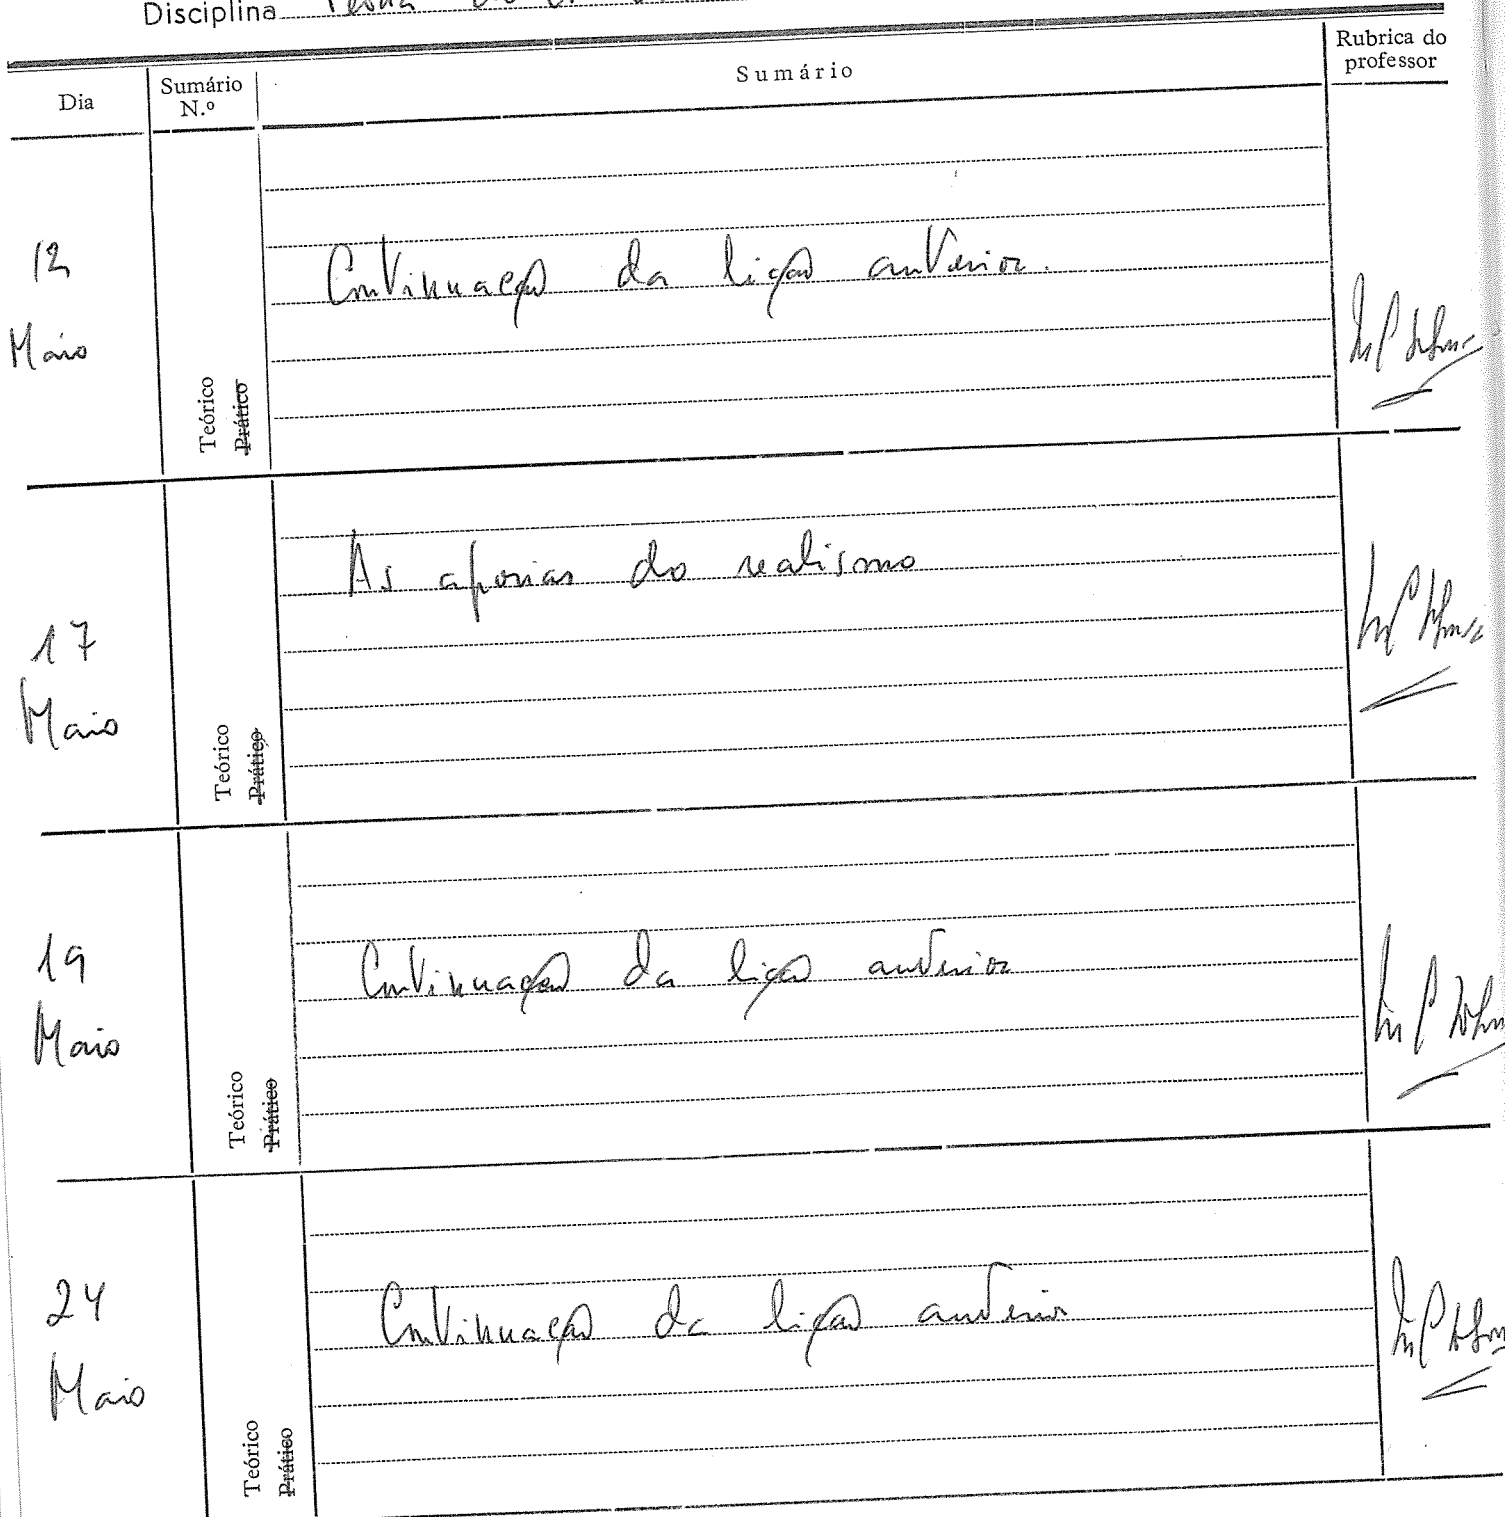 Disciplina
Dia
Sumário N.º
Sumário
Rubrica do professor
12 Maio
Teórico
Prático
Continuação da lição anterior.
17 Maio
Teórico
Prático
As aporias do realismo
19 Maio
Teórico
Prático
Continuação da lição anterior
24 Maio
Teórico
Prático
Continuação da lição anterior